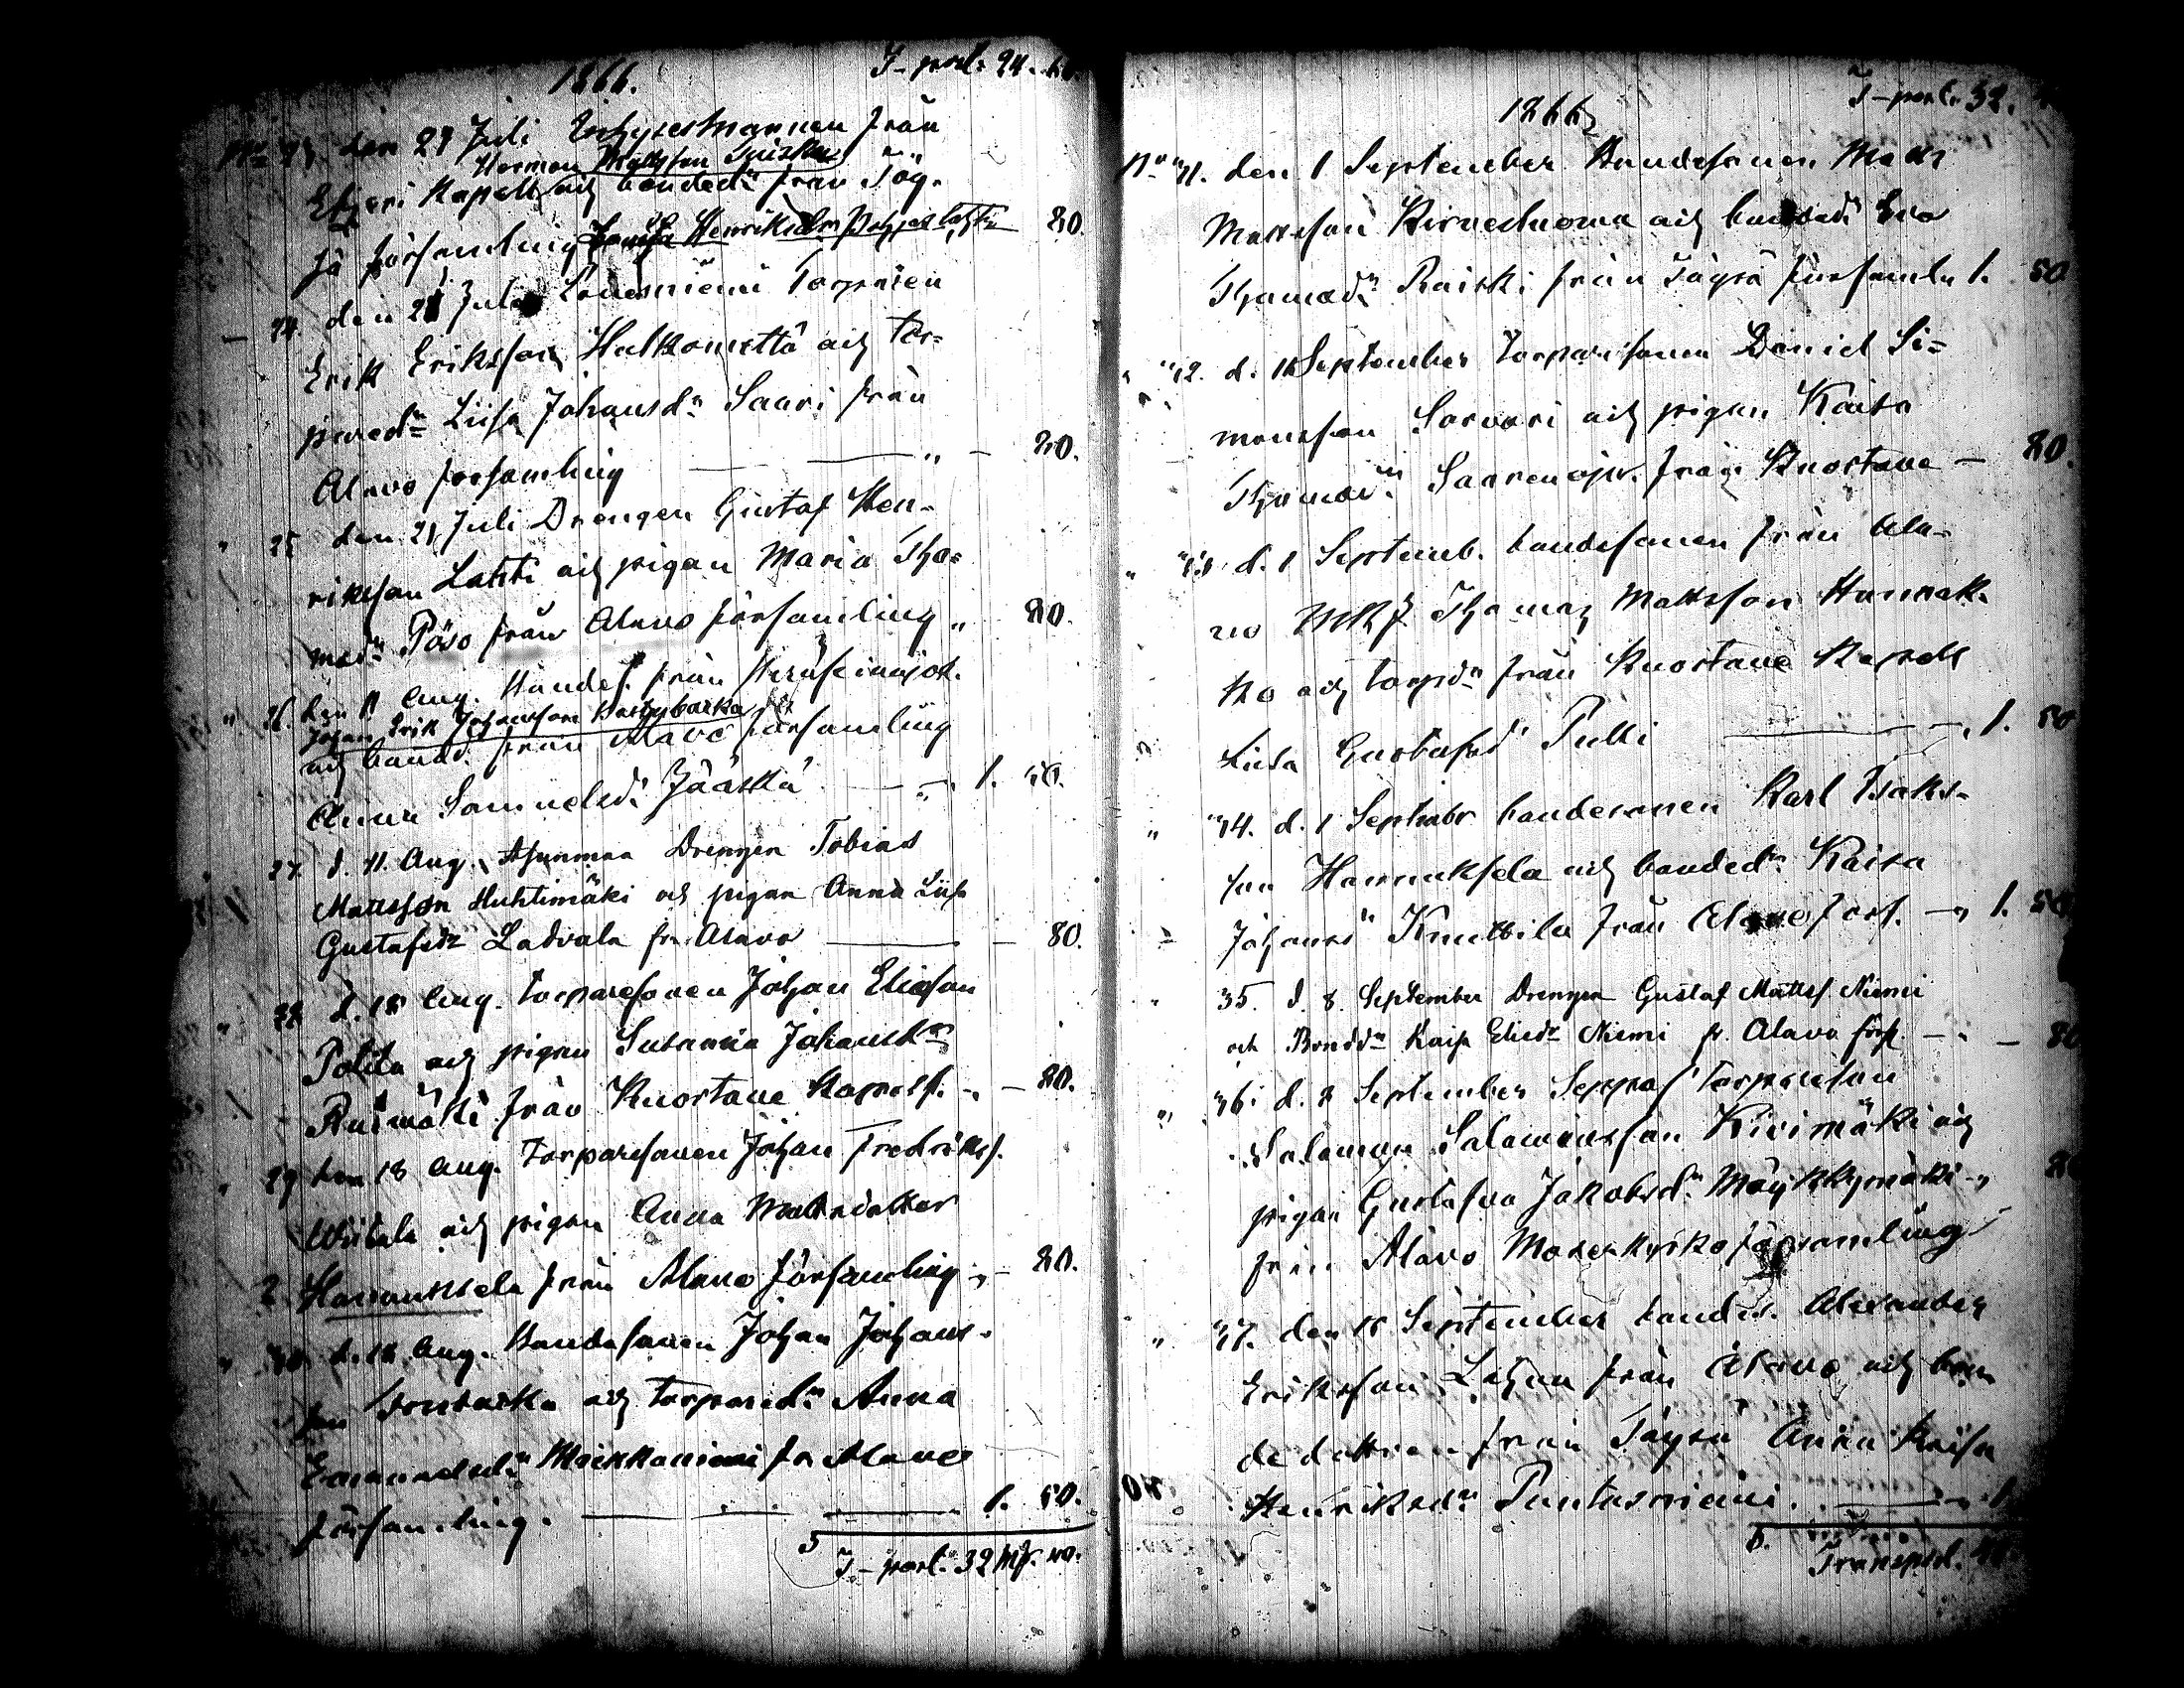 1866.
T-port. 24.
No 23. den 21 Juli Enhyseshmannen från
Herman Mattsson
Etseri Kapell och bonded:n från Töy-
sä församling Henriksd:n 80.
24. den 21 Juli Länsniemi Torparen
Erik Eriksson Hulkonettä och tor-
pared:n Liisa Johansd:n Saari från
Alavo församling — — " — 80.
25 den 21 Juli Drengen Gustaf Hen-
riksson Lahti och pigan Maria Tho-
masd:n Pöso från Alavo församling " 80.
" 26. den 11 Aug. Bondes. från
Johan Erik Johansson
och bondd. från Alavo församling
Anna Samuelsd: Jääskä — " 1. 50.
27. d. 11. Aug. Drengen Tobias
Mattsson Huhtimäki och pigan Anna Liisa
Gustafsd:r Ladvala fr. Alavo — — 80.
28 d. 18 Aug. torparesonen Johan Eliasson
Potila och pigan Susanna Johansd:r
från Kuortane Kapellf. " — 80.
" 29 den 18 Aug. Torparesonen Johan Fredrikss.
Wiitala och pigan Anna Mattsdotter
2. Hannuksela från Alavo församling " — 80.
" 30 d. 18 Aug. Bondesonen Johan Johans-
son och torpared:n Anna
Emanuelsd:n fr Alavo
församling. — — — 1. 50.
5
T-port. 32 Mk. 40.
1866
T-port. 32.
No 31. den 1 September Bondesonen Mats
Mattsson Kirvesluoma och bonded: Eva
Thomasd:n Raiski från Töysä församl. 1. 50
" 32. d. 1 September Torparesonen Daniel Si-
monsson Sarvari och pigan Kaisa
Thomasd:n från Kuortane — 80.
" 33 d. 1 Septemb. bondesonen från Ala-
vo MKf Thomas Mattsson Hannuk-
ko och torpd:n från Kuortane Kapell
Liisa Gustafsd: Pulli — " 1. 50
" 34. d. 1 Septembr bondesonen Karl Isaks-
son Hannuksela och bonded:n Kaisa
Johansd:n Knuttila från Alavo förs. — " 1. 50
" 35. d. 8. September Drengen Gustaf Mattss Niemi
och Bondd:n Kaisa Eliasd:r Niemi fr. Alavo förs. — " — 80
" 36. d. 8 September Torpareson
Salomon Salomonsson Kivimäki och
pigan Gustafva Jakobsd:n Mäykkymäki — " 80
från Alavo Moderkyrko församling
" 37. den 15 September bondes. Alexander
Eriksson från Alavo och bon-
dedottren från Töysä Anna Kaisa
Henriksd:n Puntusniemi. — " 1.
6.
Transport.